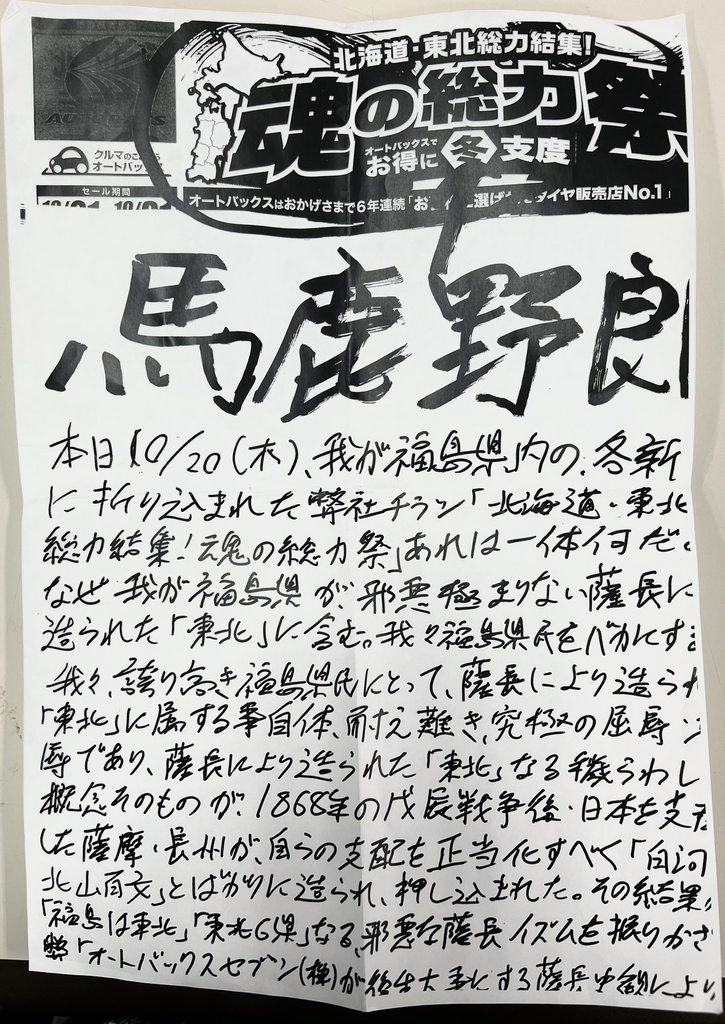 北海道・東北総力結集!
魂の総力祭
オートバックスで
お得に 冬 支度
クルマのこと
オートバッ
セール期間
オートバックスはおかげさまで6年連続「お 選ば タイヤ販売店No.1」
馬鹿野郎
本日10/20(木)、我が福島県内の、各新
に折り込まれた弊社チラシ「北海道・東北
総力結集!魂の総力祭」あれは一体何だ。
なぜ我が福島県が、邪悪極まりない薩長に
造られた「東北」に含む。我々福島県民をバカにす
我々、誇り高き福島県民にとって、薩長により造られ
「東北」に属する事自体、耐え難き、究極の屈辱
辱であり、薩長により造られた「東北」なる穢らわし
概念そのものが、1868年の戊辰戦争後・日本を支
した薩摩・長州が、自らの支配を正当化すべく「白河
北山百文」とばかりに造られ、押し込まれた。その結果
「福島は東北」「東北6県」なる、邪悪な薩長イズムを振りかざ
「オートバックスセブン(株)が後生大事にする薩長史観により